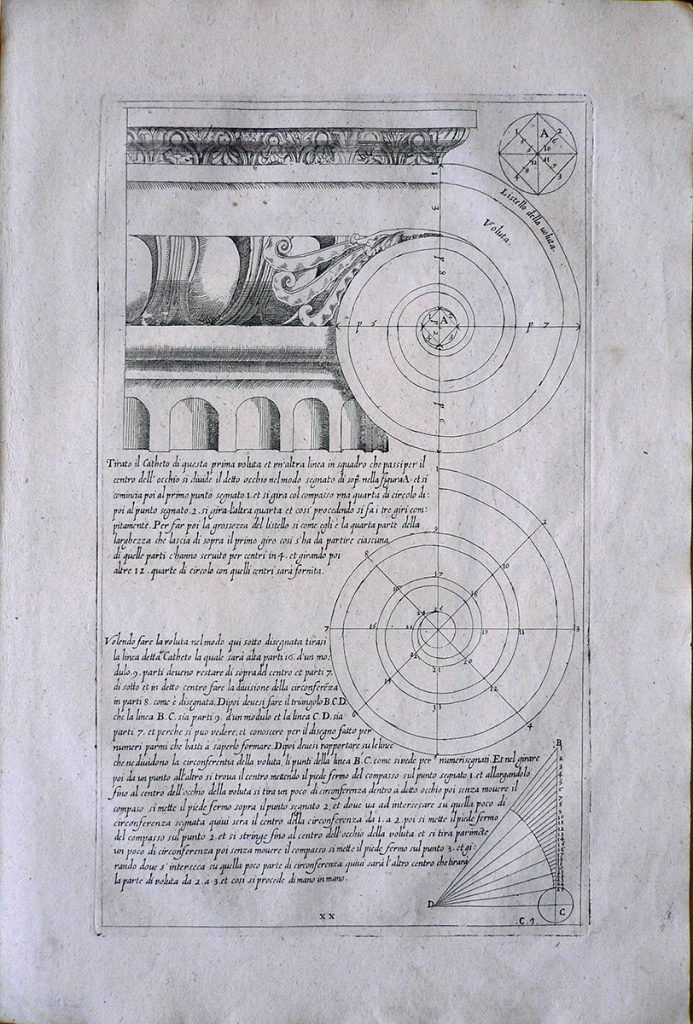 A
1 2
5 6
9 10
12 11
8 7
4 3
Listello della voluta.
Voluta.
1
3
p 8
p 5
A
p 7
p 6
Tirato il Catheto di questa prima voluta et vn'altra linea in squadro che passi per il
centro dell'occhio si diuide il detto occhio nel modo segnato di sop.ª nella figura A. et si
comincia poi al primo punto segnato 1. et si gira col compasso vna quarta di circolo di:
poi al punto segnato 2. si gira l'altra quarta et cosi procedendo si fa i tre giri com:
pitamente. Per far poi la grossezza del listello si come egli è la quarta parte della
larghezza che lascia di sopra il primo giro cosi s'ha da partire ciascuna
di quelle parti c'hanno seruito per centri in 4. et girando poi
altre 12. quarte di circolo con quelli centri sarà fornita.
1
2
9
8
10
17
16
18
24
25
7
15
23
19
11
3
22
20
21
14
12
13
6
4
5
Volendo fare la voluta nel modo qui sotto disegnata tirasi
la linea detta Catheto la quale sarà alta parti 16. d'un mo:
dulo. 9. parti deueno restare di sopra del centro et parti 7.
di sotto et in detto centro fare la diuisione della circonferẽza
in parti 8. come è disegnata. Dipoi deuesi fare il triangolo B.C.D.
che la linea B.C. sia parti 9. d'un modulo et la linea C.D. sia
parti 7. et perche si puo vedere, et conoscere per il disegno fatto per
numeri parmi che basti à saperlo formare. Dipoi deuesi rapportare su le linee
che ne diuidono la circonferentia della voluta, li punti della linea B.C. come si vede per numeri segnati. Et nel girare
poi da vn punto all'altro si troua il centro mettendo il piede fermo del compasso sul punto segnato 1. et allargandolo
fino al centro dell'occhio della voluta si tira vn poco di circonferenza dentro à detto occhio poi senza mouere il
compaso si mette il piede fermo sopra il punto segnato 2. et doue va ad intersecare su quella poco di
circonferenza segnata quiui sera il centro della circonferenza da 1. a 2. poi si mette il piede fermo
del compasso sul punto 2. et si stringe fino al centro dell'occhio della voluta et si tira parimẽte
vn poco di circonferenza poi senza mouere il compasso si mette il piede fermo sul punto 3. et gi:
rando doue s'interseca su quella poco parte di circonferenza quiui sarà l'altro centro che tirarà
la parte di voluta da 2. à 3. et cosi si procede di mano in mano.
B
D
C
.C.9.
XX